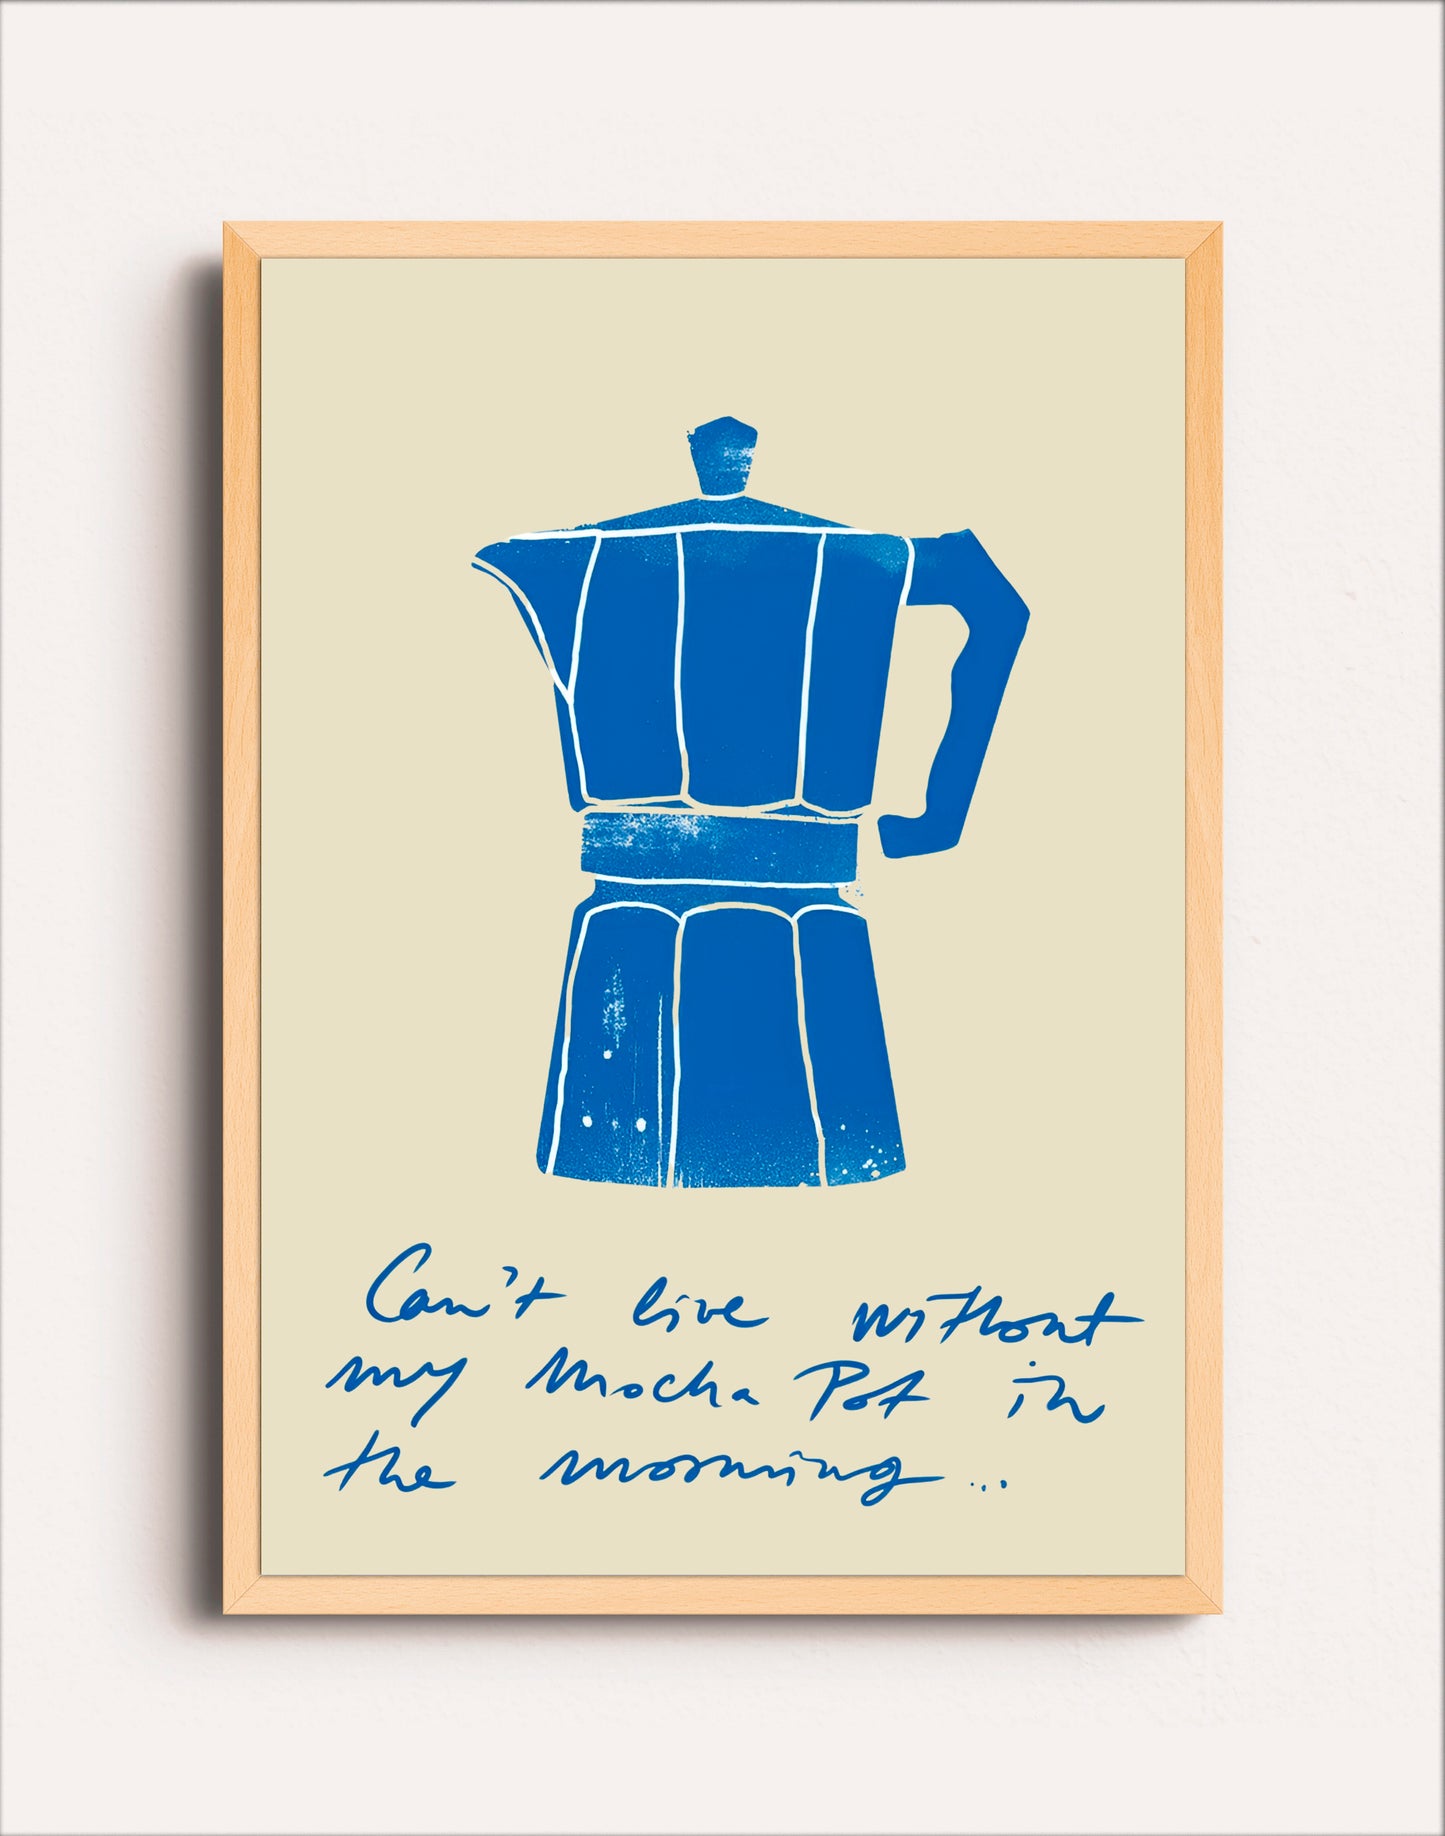 Can't live without
my Mocha Pot in
the morning...